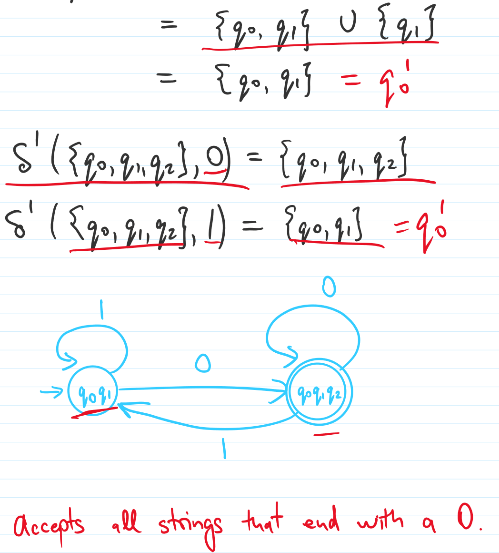 = {q₀, q₁} ∪ {q₁}
= {q₀, q₁} = q₀'
δ'({q₀,q₁,q₂},0) = {q₀, q₁, q₂}
δ'({q₀, q₁, q₂},1) = {q₀,q₁} = q₀'
0
1
0
q₀q₁
q₀q₁q₂
1
Accepts all strings that end with a 0.